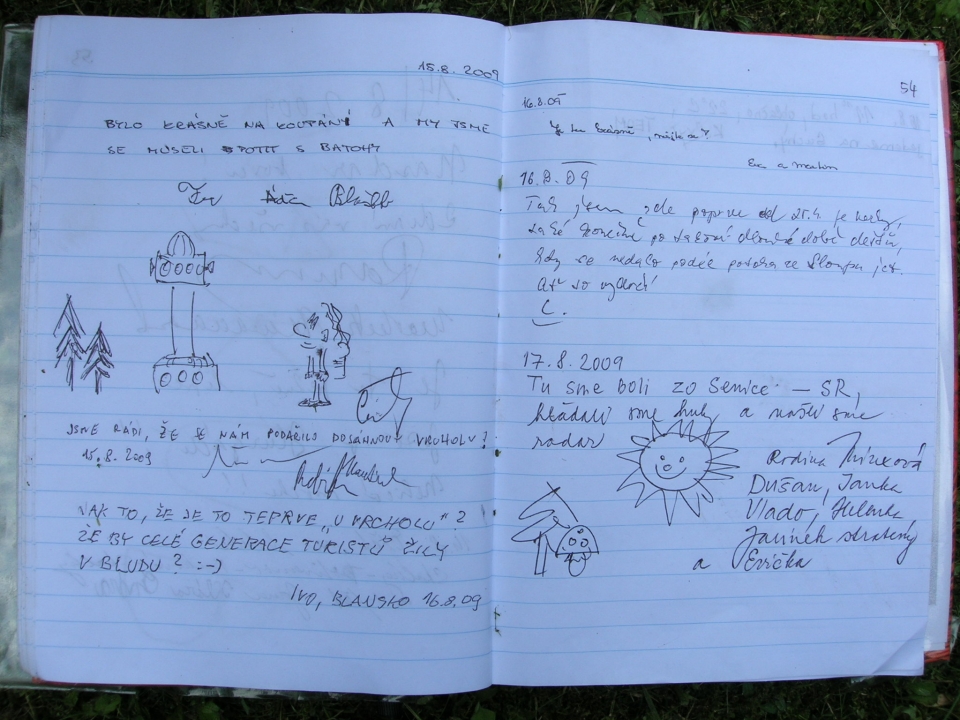 15.8. 2009
BYLO KRÁSNĚ NA KOUPÁNÍ A MY JSME
SE MUSELI POTIT S BATOHY
JSME RÁDI, ŽE SE NÁM PODAŘILO DOSÁHNOUT VRCHOLU!
15.8. 2009
JAK TO, ŽE JE TO TEPRVE „U VRCHOLU“?
ŽE BY CELÉ GENERACE TURISTŮ ŽILY
V BLUDU? :-)
IVO, BLANSKO 16.8.09
54
16.8.09
Je tu krásně,
Eva a
16.8.09
Tak jsem zde poprve od 25.4
také konečně po takové dlouhé době dešťů,
kdy se nedalo podél potoka ze Sloupu jet.
Ať to vydrží
17.8.2009
Tu sme boli zo Senice – SR,
hľadali sme huby a našli sme
radar
Rodina
Dušan, Janka
Vlado, Helenka
Janínek stratený
a Evička